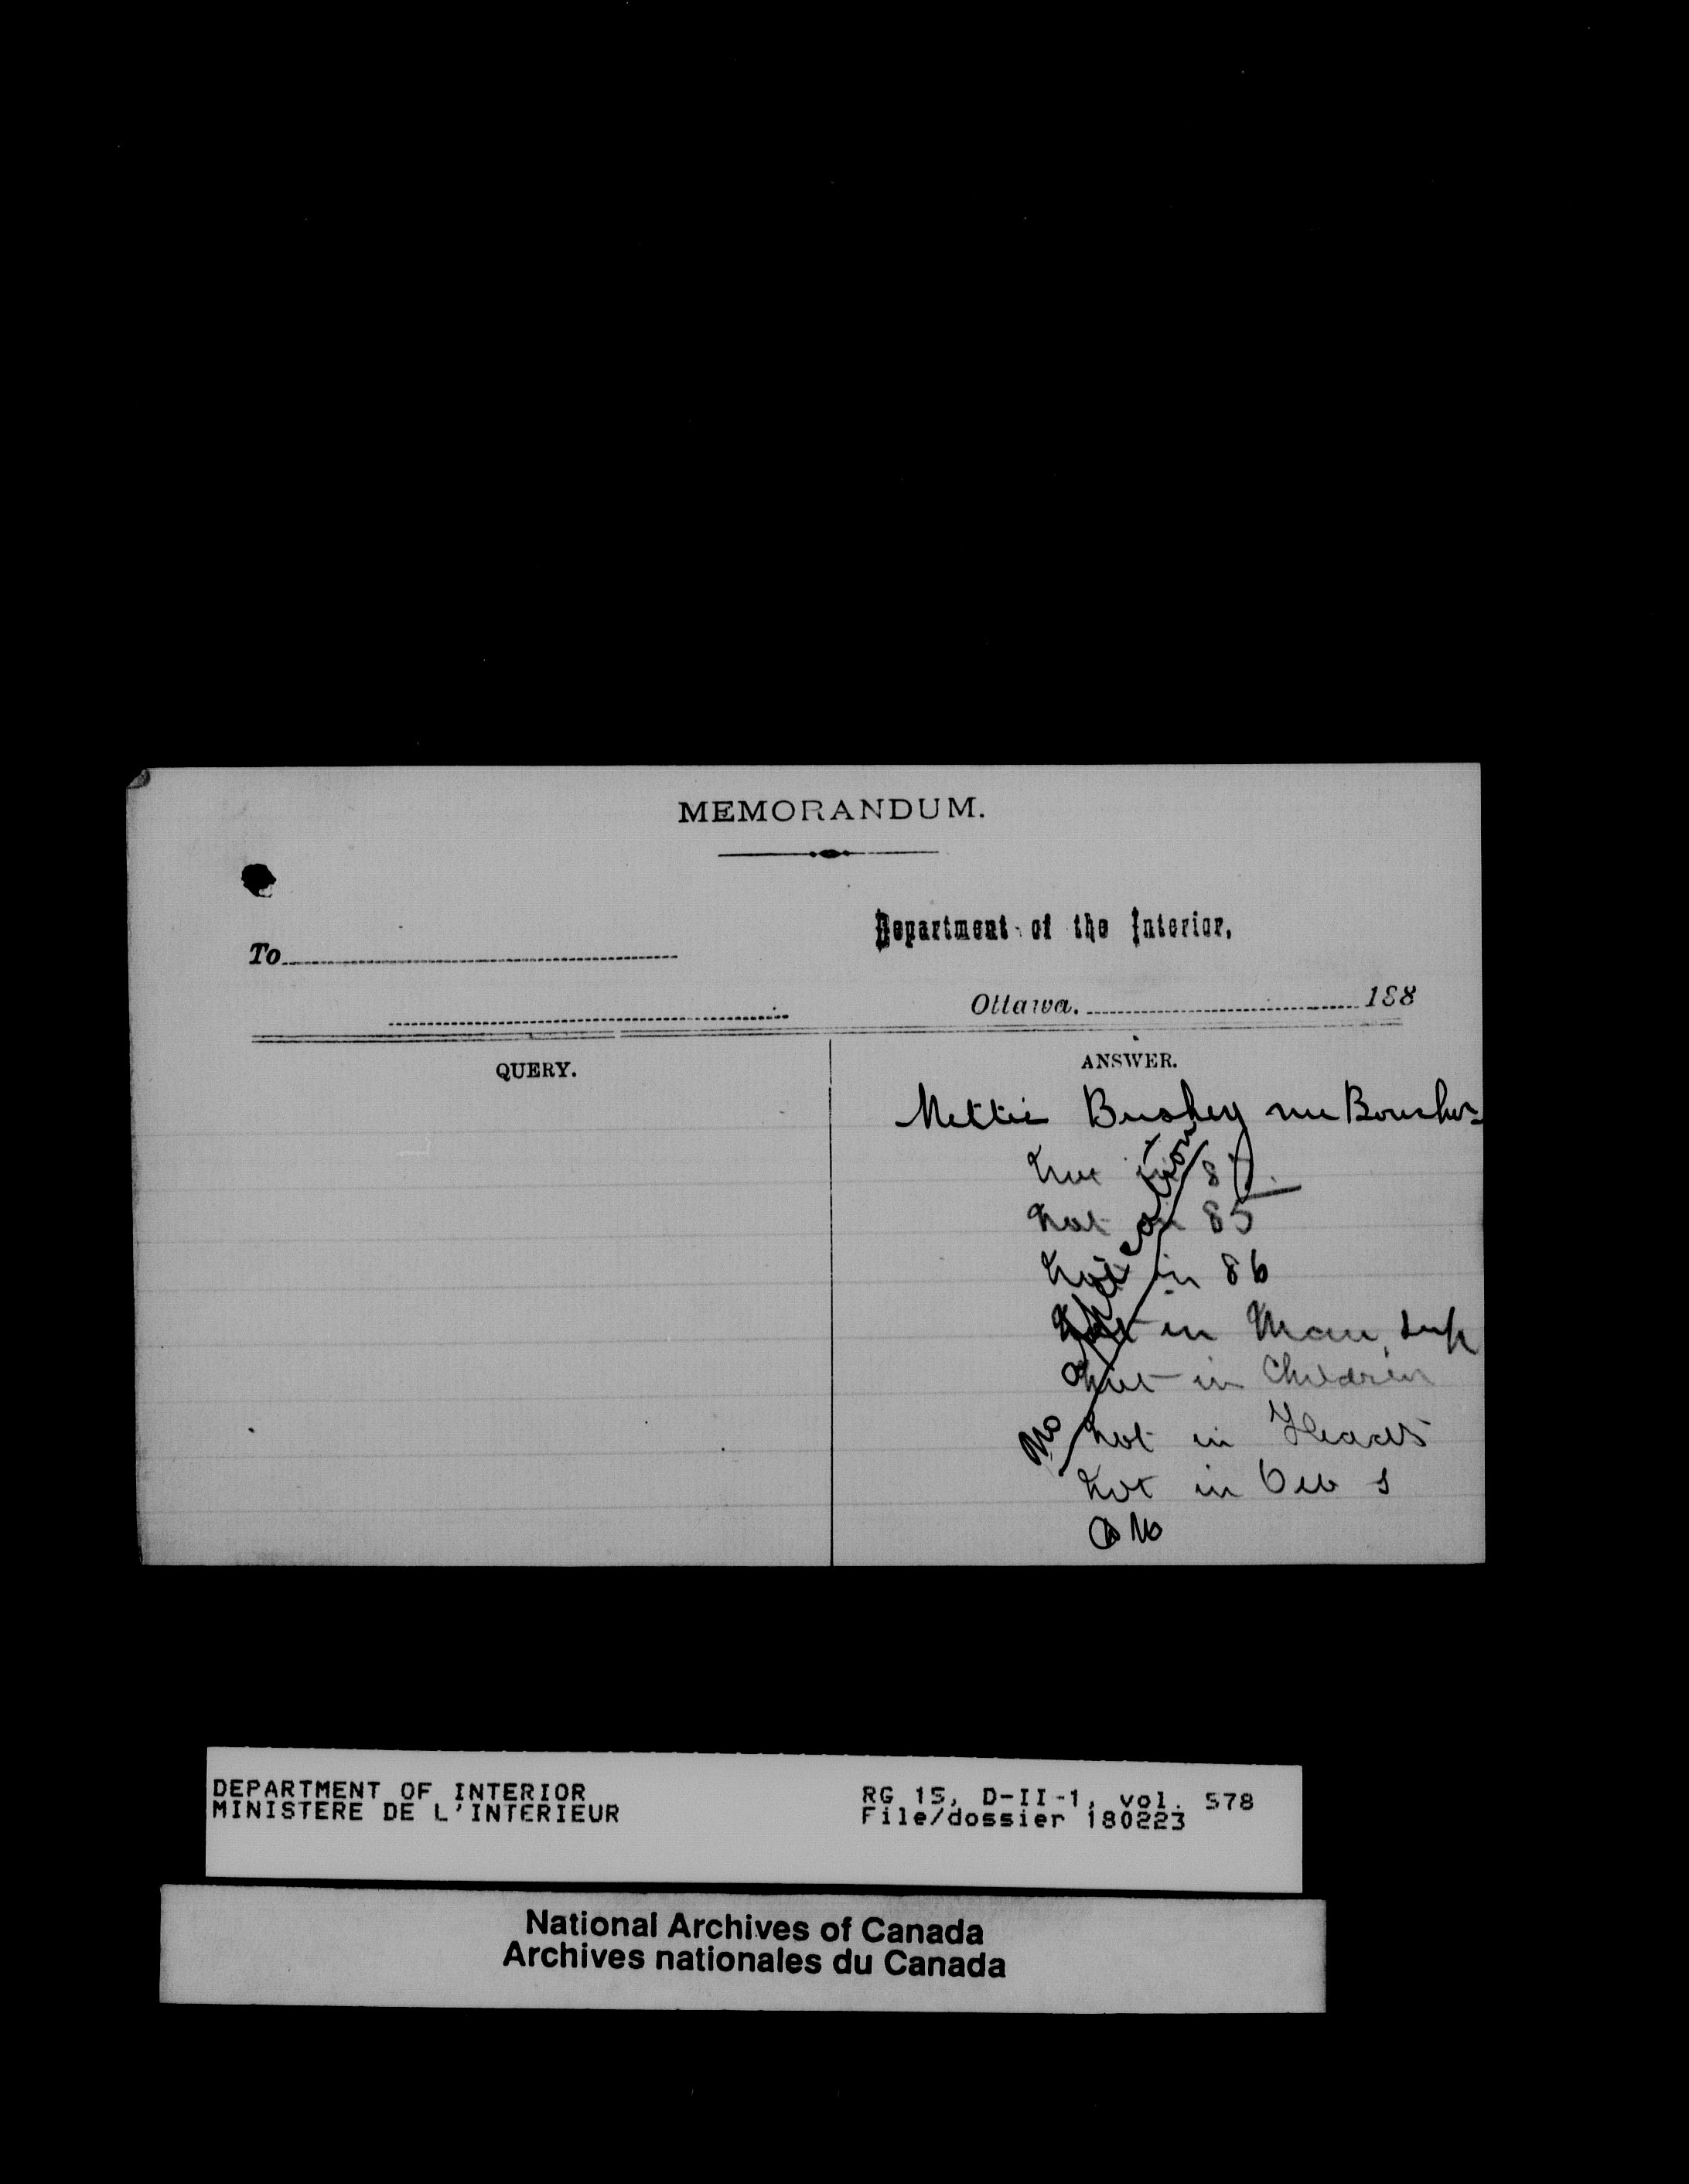 MEMORANDUM.
Department of the Interior,
To
Ottawa. 188
QUERY.
ANSWER.
Mettie Bushey nee Boucher
not in 8
not in 85
not in 86
not in Man, Sup
not in Children
not in Heads
not in
No application
DEPARTMENT OF INTERIOR
MINISTERE DE L'INTERIEUR
RG 15, D-II-1, vol. 578
File/dossier 180223
National Archives of Canada
Archives nationales du Canada